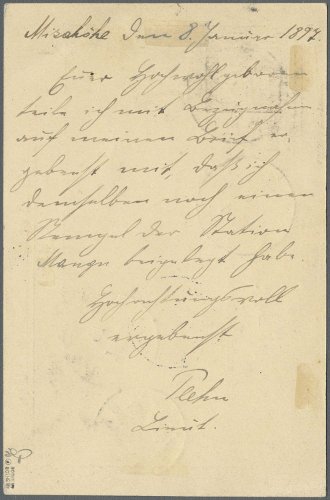 Misahöhe den 8. Januar 1897.
Euer Hochwohlgeboren
teile ich mit Bezugnahme
auf meinen Brief er-
gebenst mit, daß ich
demselben noch einen
Stempel der Station
Mangu beigelegt habe.
Hochachtungsvoll
ergebenst
Plehn
Lieut.